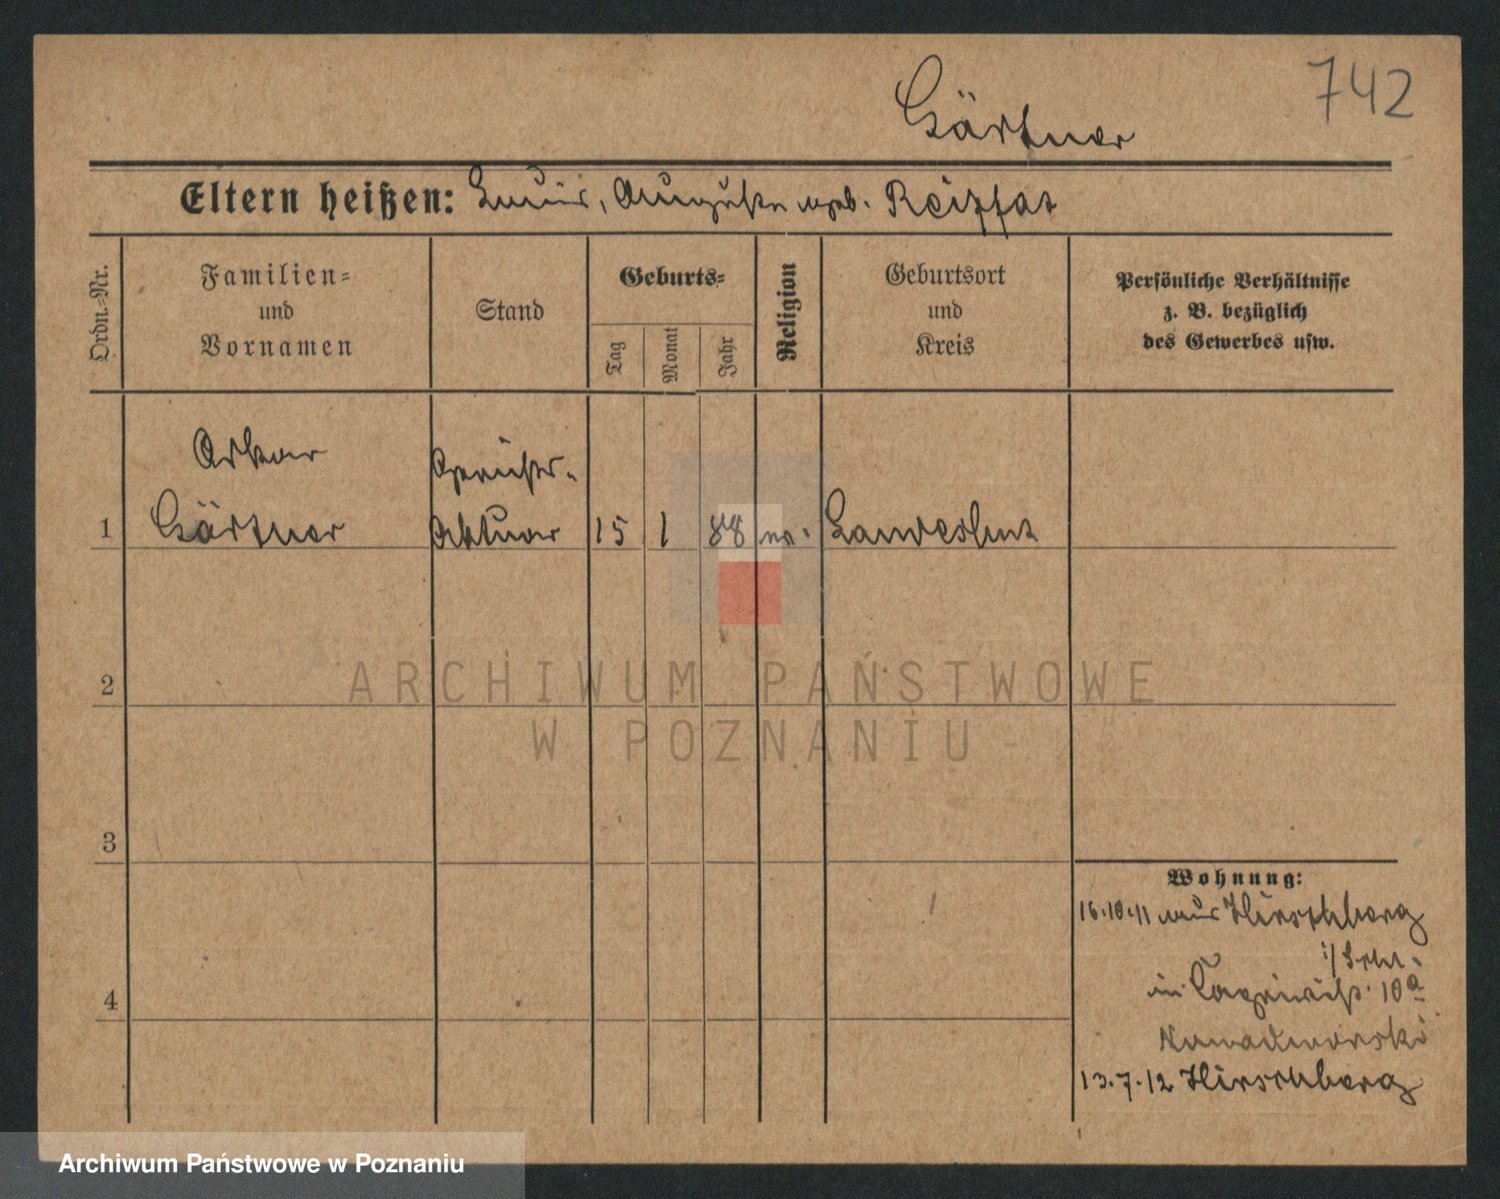 742
Gärtner
Eltern heißen: Louis, Auguste geb.
Ordn.=Nr.
Familien=
und
Vornamen
Stand
Geburts=
Tag
Monat
Jahr
Religion
Geburtsort
und
Kreis
Persönliche Verhältnisse
z. B. bezüglich
des Gewerbes usw.
Oskar
Gärtner
Gerichts-
Aktuar
1
15
1
88
ev.
Landeshut
2
ARCHIWUM PAŃSTWOWE
W POZNANIU
3
4
Wohnung:
16.10.11 aus Hirschberg
i/Schl.
in 10a
Nawadworski
13.7.12 Hirschberg
Archiwum Państwowe w Poznaniu